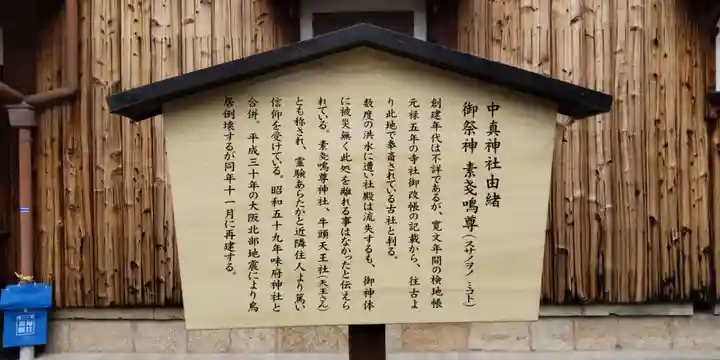 中真神社由緒
御祭神 素戔鳴尊(スサノヲノミコト)
創建年代は不詳であるが、寛文年間の検地帳
元禄五年の寺社御改帳の記載から、往古よ
り此地で奉斎されている古社と判る。
数度の洪水に遭い社殿は流失するも、御神体
に被災無く此処を離れる事はなかったと伝えら
れている。素戔鳴尊神社、牛頭天王社(天王さん)
とも称され、霊験あらたかと近隣住人より篤い
信仰を受けている。昭和五十九年味府神社と
合併。平成三十年の大阪北部地震により鳥
居倒壊するが同年十一月に再建する。